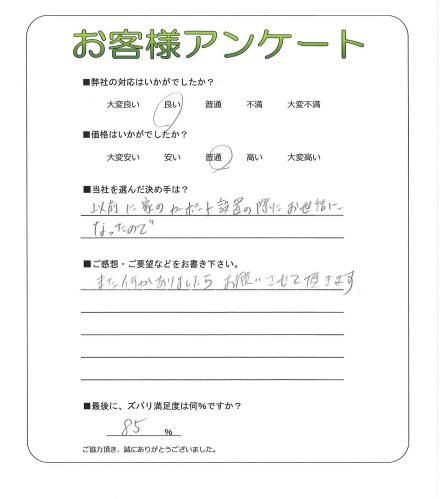 お客様アンケート
■弊社の対応はいかがでしたか？
大変良い 良い 普通 不満 大変不満
■価格はいかがでしたか？
大変安い 安い 普通 高い 大変高い
■当社を選んだ決め手は？
以前に家のカーポート設置の際にお世話に
なったので
■ご感想・ご要望などをお書き下さい。
また何かありましたらお願いさせて頂きます
■最後に、ズバリ満足度は何％ですか？
85 ％
ご協力頂き、誠にありがとうございました。